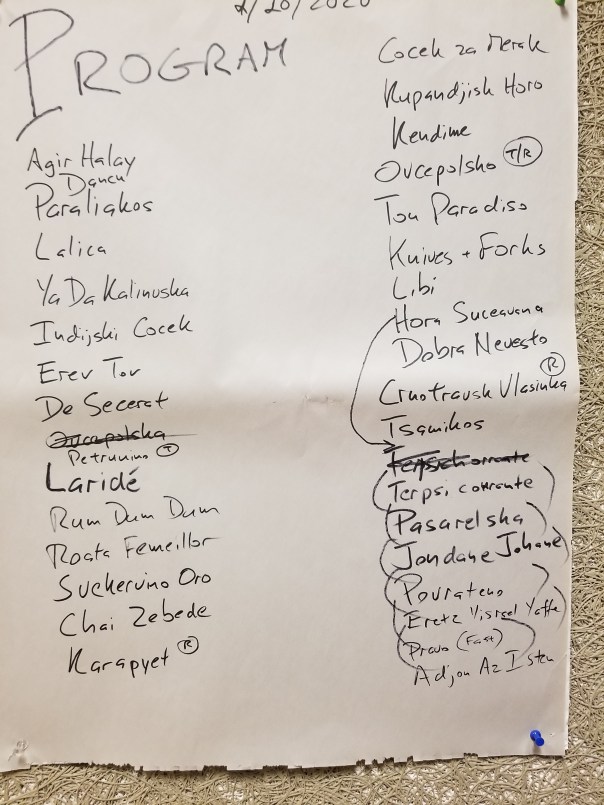 /20/2020
PROGRAM
Agir Halay
Dancu
Paraliakos
Lalica
Ya Da Kalinuska
Indijski Cocek
Erev Tov
De Secerat
Ovcepolska
Petrunino T
Laridé
Rum Dum Dum
Roata Femeillor
Suckeruino Oro
Chai Zebede
Karapyet R
Cocek za Merak
Kupandjisk Horo
Kendime
Ovcepolsko T/R
Tou Paradiso
Knives + Forks
Libi
Hora Suceavana
Dobra Nevesto
Crnotravsk Vlasinka R
Tsamikos
Terpsi corrante
Pasarelska
Jondane Johane
Povrateno
Eretz Yisrael Yaffe
Pravo (Fast)
Adjon Az Isten